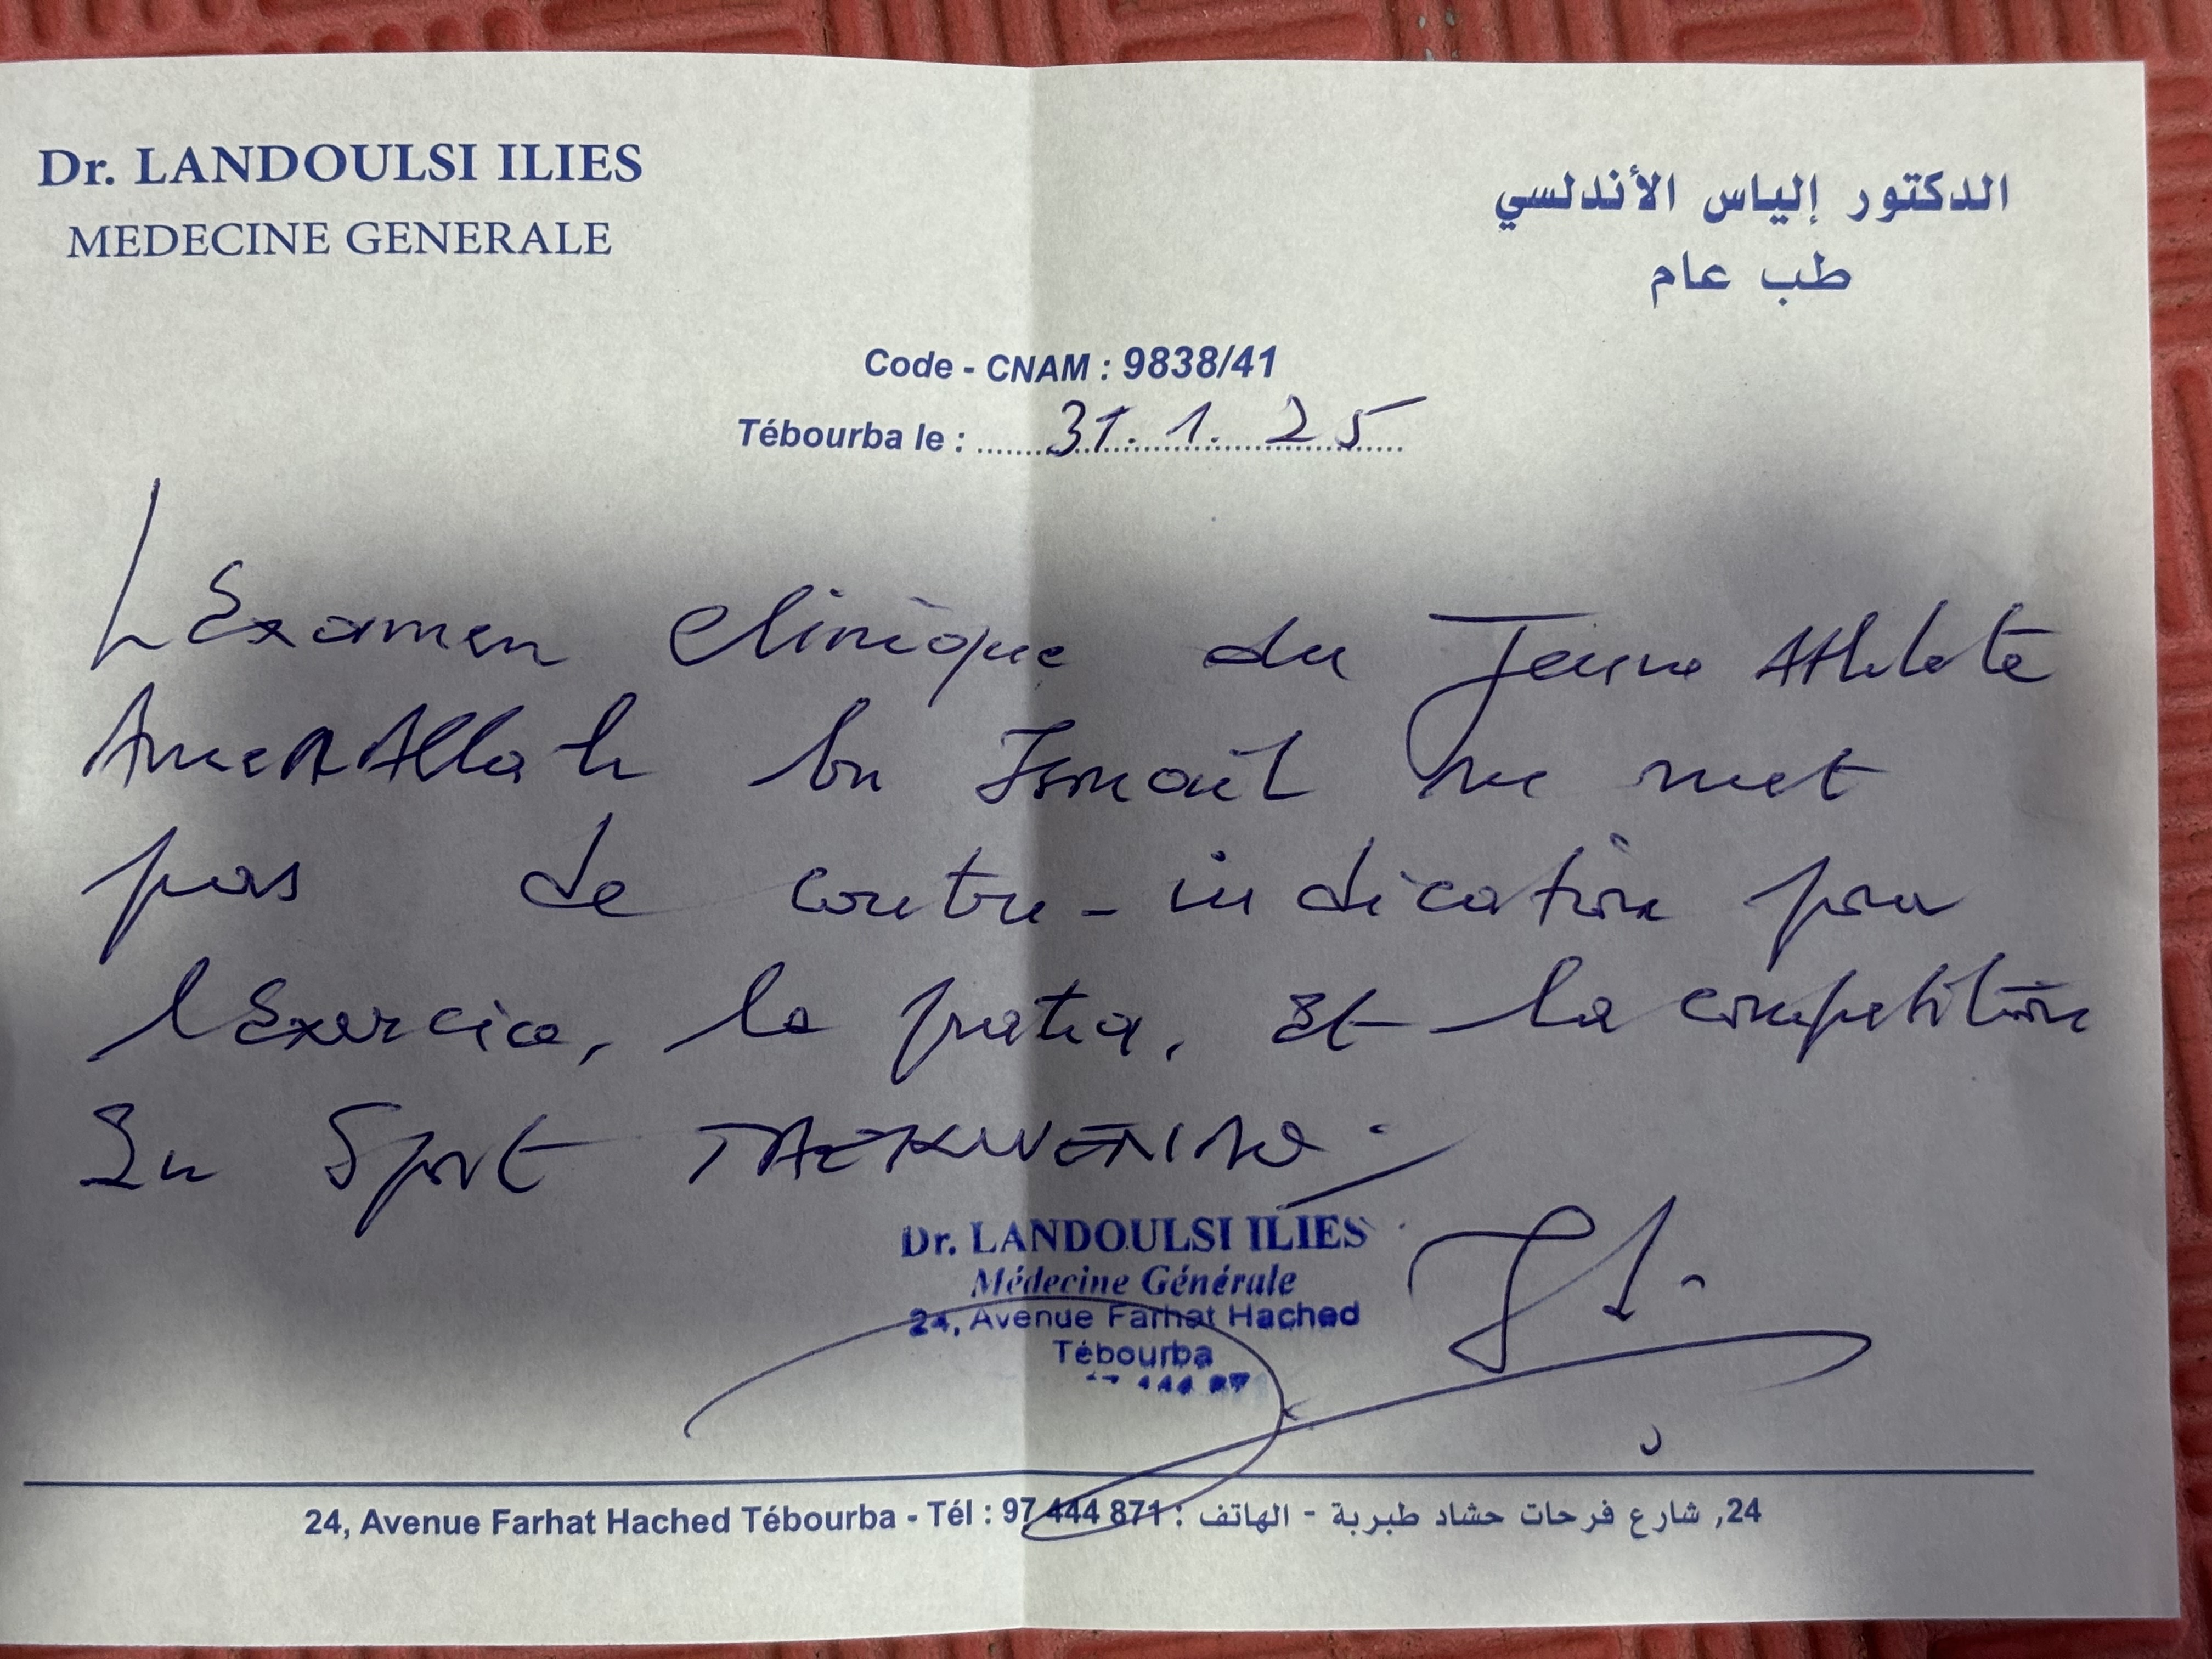 Dr. LANDOULSI ILIES
MEDECINE GENERALE
الدكتور إلياس الأندلسي
طب عام
Code - CNAM : 9838/41
Tébourba le : 31.1.25
L'Examen clinique du Jeune Athlete
Allah Ismail ne met
pas de contre-indication pour
l'Exercice, la pratiq, Et la competition
En Sport
Dr. LANDOULSI ILIES
Médecine Générale
24, Avenue Farhat Hached
Tébourba
24, Avenue Farhat Hached Tébourba - Tél : 97 444 871 : 24, شارع فرحات حشاد طبربة - الهاتف